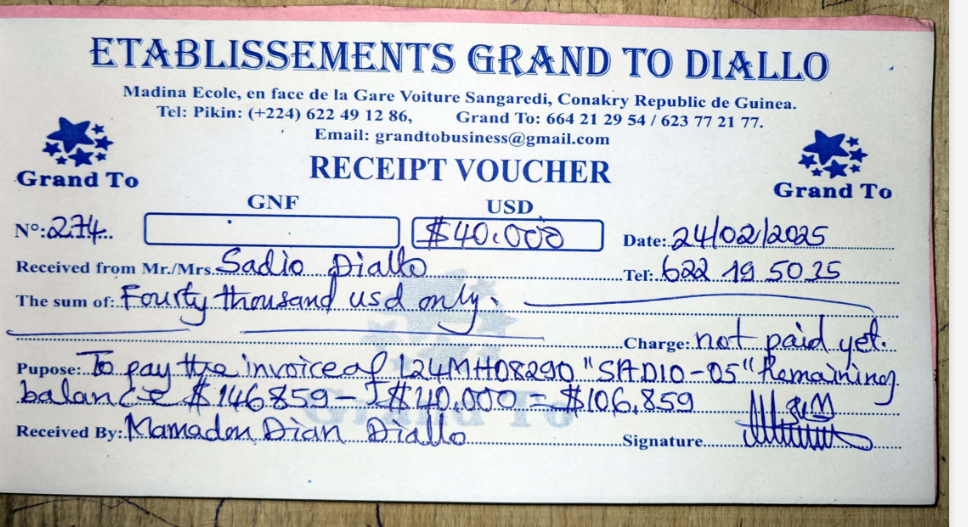 ETABLISSEMENTS GRAND TO DIALLO
Madina Ecole, en face de la Gare Voiture Sangaredi, Conakry Republic de Guinea.
Tel: Pikin: (+224) 622 49 12 86, Grand To: 664 21 29 54 / 623 77 21 77.
Email: grandtobusiness@gmail.com
Grand To
RECEIPT VOUCHER
Grand To
GNF USD
N°: 274 $40.000 Date: 24/02/2025
Received from Mr./Mrs. Sadio Diallo Tel: 622 19 50 25
The sum of: Fourty thousand usd only.
Charge: not paid yet.
Pupose: To pay the invoice of L24MH08290 "SADIO-05" Remaining
balance $146859 - $40.000 = $106,859
Received By: Mamadou Dian Diallo Signature
Grand To